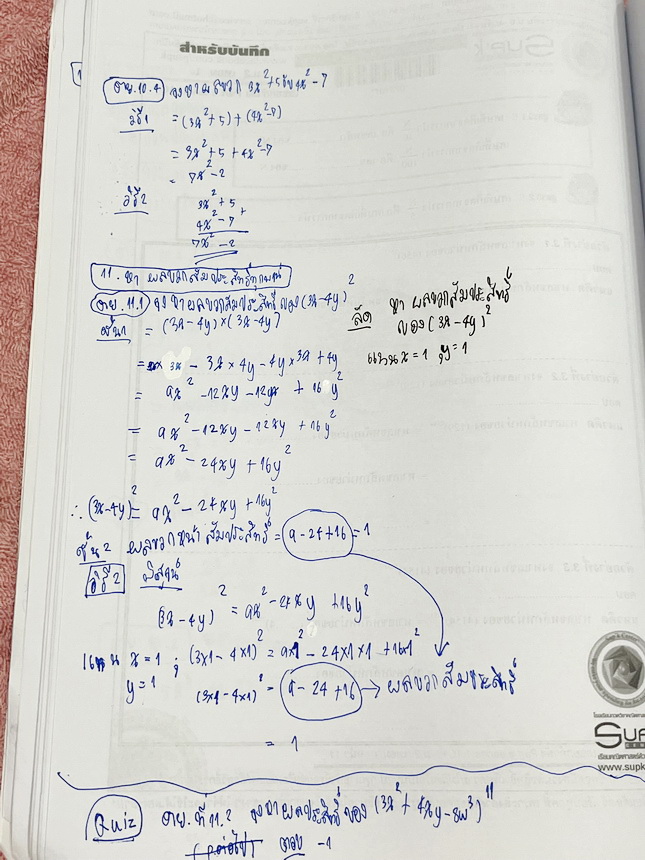 สำหรับบันทึก
ตย.10.4 จงหาผลบวก 3x²+5 กับ 4x²-7
วิธี1 = (3x²+5) + (4x²-7)
= 3x²+5+4x²-7
= 7x²-2
วิธี2 3x²+5
4x²-7 +
7x²-2
11. หาผลบวกสัมประสิทธิ์ทุกพจน์
ตย. 11.1 จงหาผลบวกสัมประสิทธิ์ของ (3x-4y)²
ขั้น1 = (3x-4y)×(3x-4y)
- 3x×4y-4y×3x+4y
= 9x²-12xy-12yx+16y²
= 9x²-12xy-12xy+16y²
= 9x²-24xy+16y²
∴ (3x-4y)² = 9x²-24xy+16y²
ขั้น2 ผลบวกหน้าสัมประสิทธิ์ = 9-24+16 = 1
ลัด หาผลบวกสัมประสิทธิ์
ของ (3x-4y)²
แทน x=1, y=1
วิธี2 พิสูจน์
(3x-4y)² = 9x²-24xy+16y²
แทน x=1 ; (3×1-4×1)² = 9×1²-24×1×1+16×1²
y=1 (3×1-4×1)² = 9-24+16 → ผลบวกสัมประสิทธิ์
= 1
SUP
www.supk
Quiz ตย.ที่ 11.2 จงหาผลประสิทธิ์ของ (3x²+4xy-8w³)¹¹
ตอบ -1